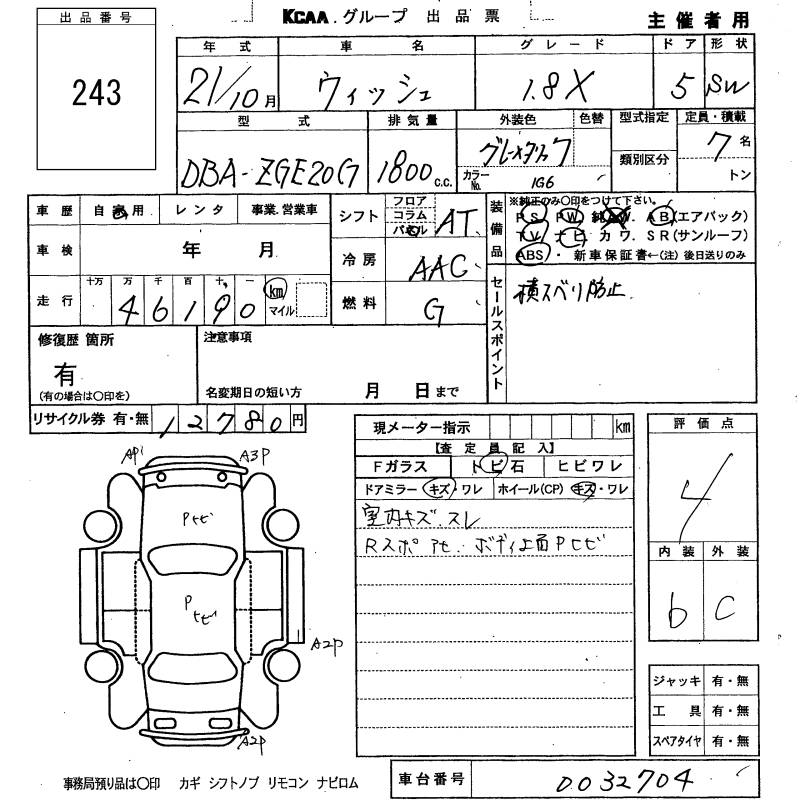 出品番号
KCAA グループ 出品票
主催者用
243
年式 車名 グレード ドア 形状
21/10月 ウィッシュ 1.8X 5 SW
型式 排気量 外装色 色替 型式指定 定員・積載
DBA-ZGE20G 1800c.c. 7名
カラーNo. 1G6 類別区分 トン
車歴 自家用 レンタ 事業.営業車
シフト フロア コラム パネル AT
装備品 ※純正のみ〇印をつけて下さい。
PS. PW. 純AW. AB(エアバック)
TV. ナビ. カワ. SR(サンルーフ)
ABS・新車保証書←(注)後日送りのみ
車検 年 月
冷房 AAC
走行 十万 万 千 百 十 一
46190 km マイル
燃料 G
セールスポイント 横スベリ防止
修復歴 箇所 注意事項
有
(有の場合は〇印を) 名変期日の短い方 月 日まで
リサイクル券 有・無 12780円
現メーター指示 km
【査定員記入】
評価点
Fガラス トビ石 ヒビワレ
ドアミラー キズ・ワレ ホイール(CP) キズ・ワレ
4
室内キズ.スレ
Rスポ アセ. ボディ上面Pセビ
内装 外装
b C
A3P
A2P
A2P
ジャッキ 有・無
工具 有・無
スペアタイヤ 有・無
事務局預り品は〇印 カギ シフトノブ リモコン ナビロム
車台番号 0032704